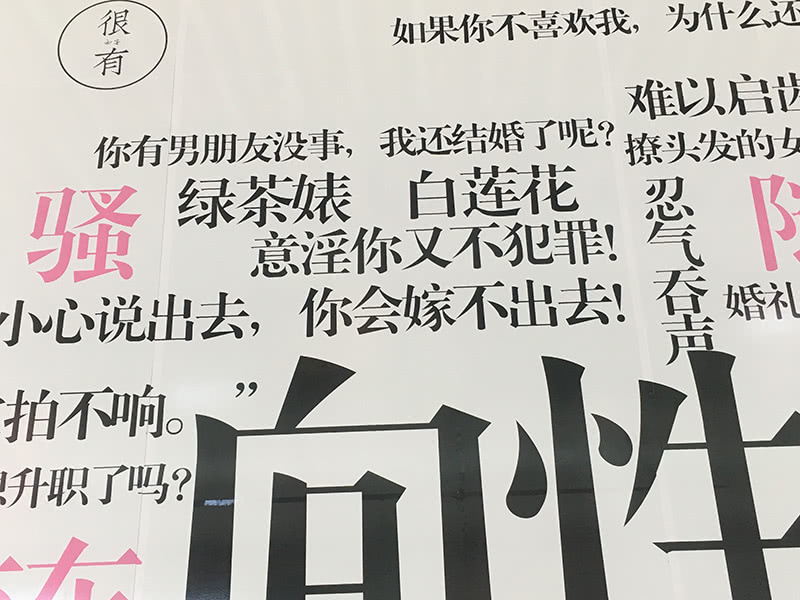 很
有
如果你不喜欢我，为什么还
难以启齿
你有男朋友没事，我还结婚了呢？
撩头发的女
骚
绿茶婊 白莲花
忍气吞声
意淫你又不犯罪！
小心说出去，你会嫁不出去！
婚礼
拍不响。”
向性
升职了吗？